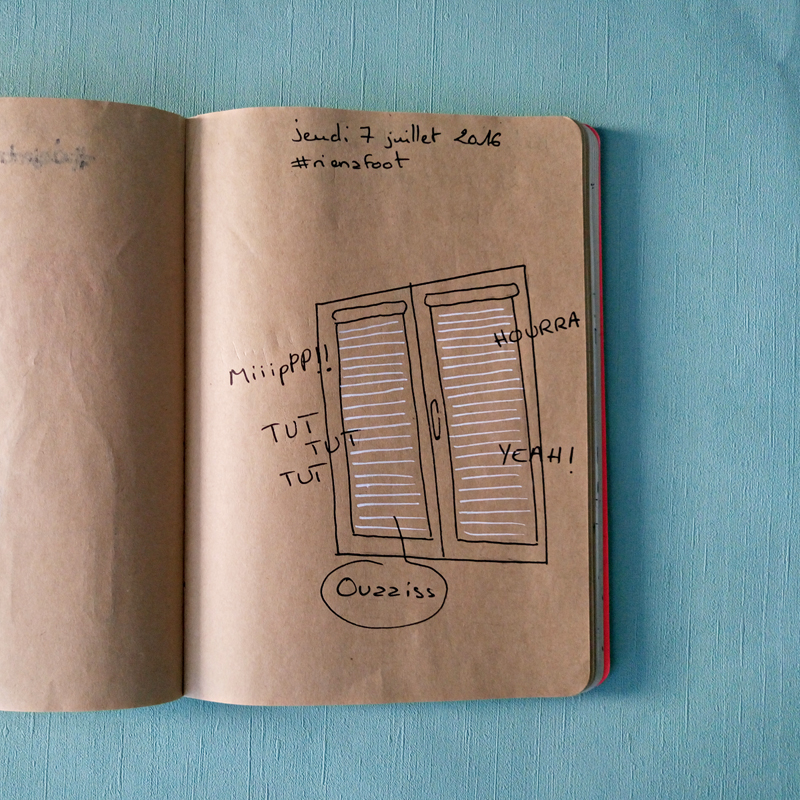 jeudi 7 juillet 2016
#rienafoot
HOURRA
MiiipPP!!
TUT
TUT
TUT
YEAH!
Ouzziss